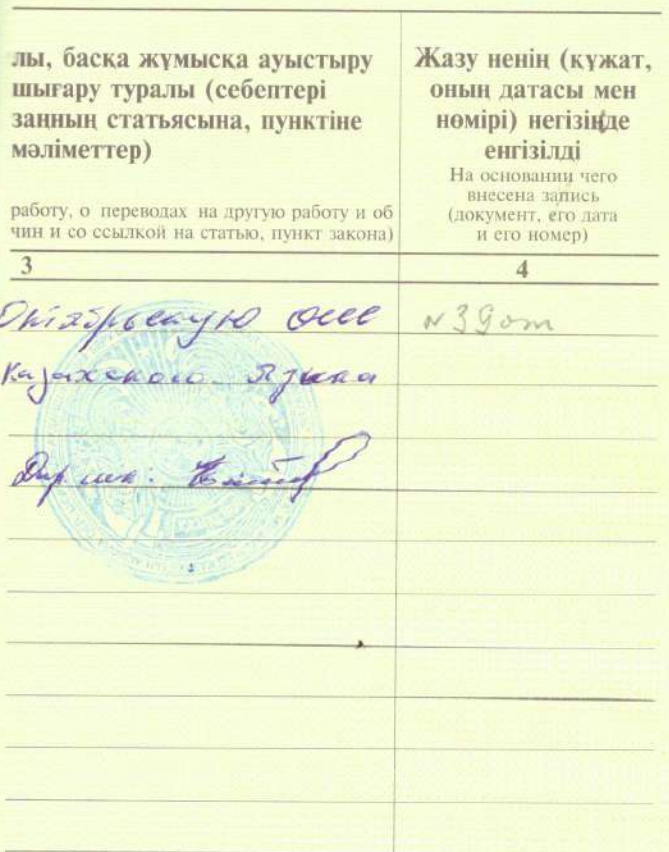 лы, басқа жұмысқа ауыстыру
шығару туралы (себептері
заңның статьясына, пунктіне
мәліметтер)
работу, о переводах на другую работу и об
чин и со ссылкой на статью, пункт закона)
Жазу ненің (құжат,
оның датасы мен
нөмірі) негізінде
енгізілді
На основании чего
внесена запись
(документ, его дата
и его номер)
3
4
Октябрьскую ОСШ
N39 от
Казахского языка
Дир. шк: